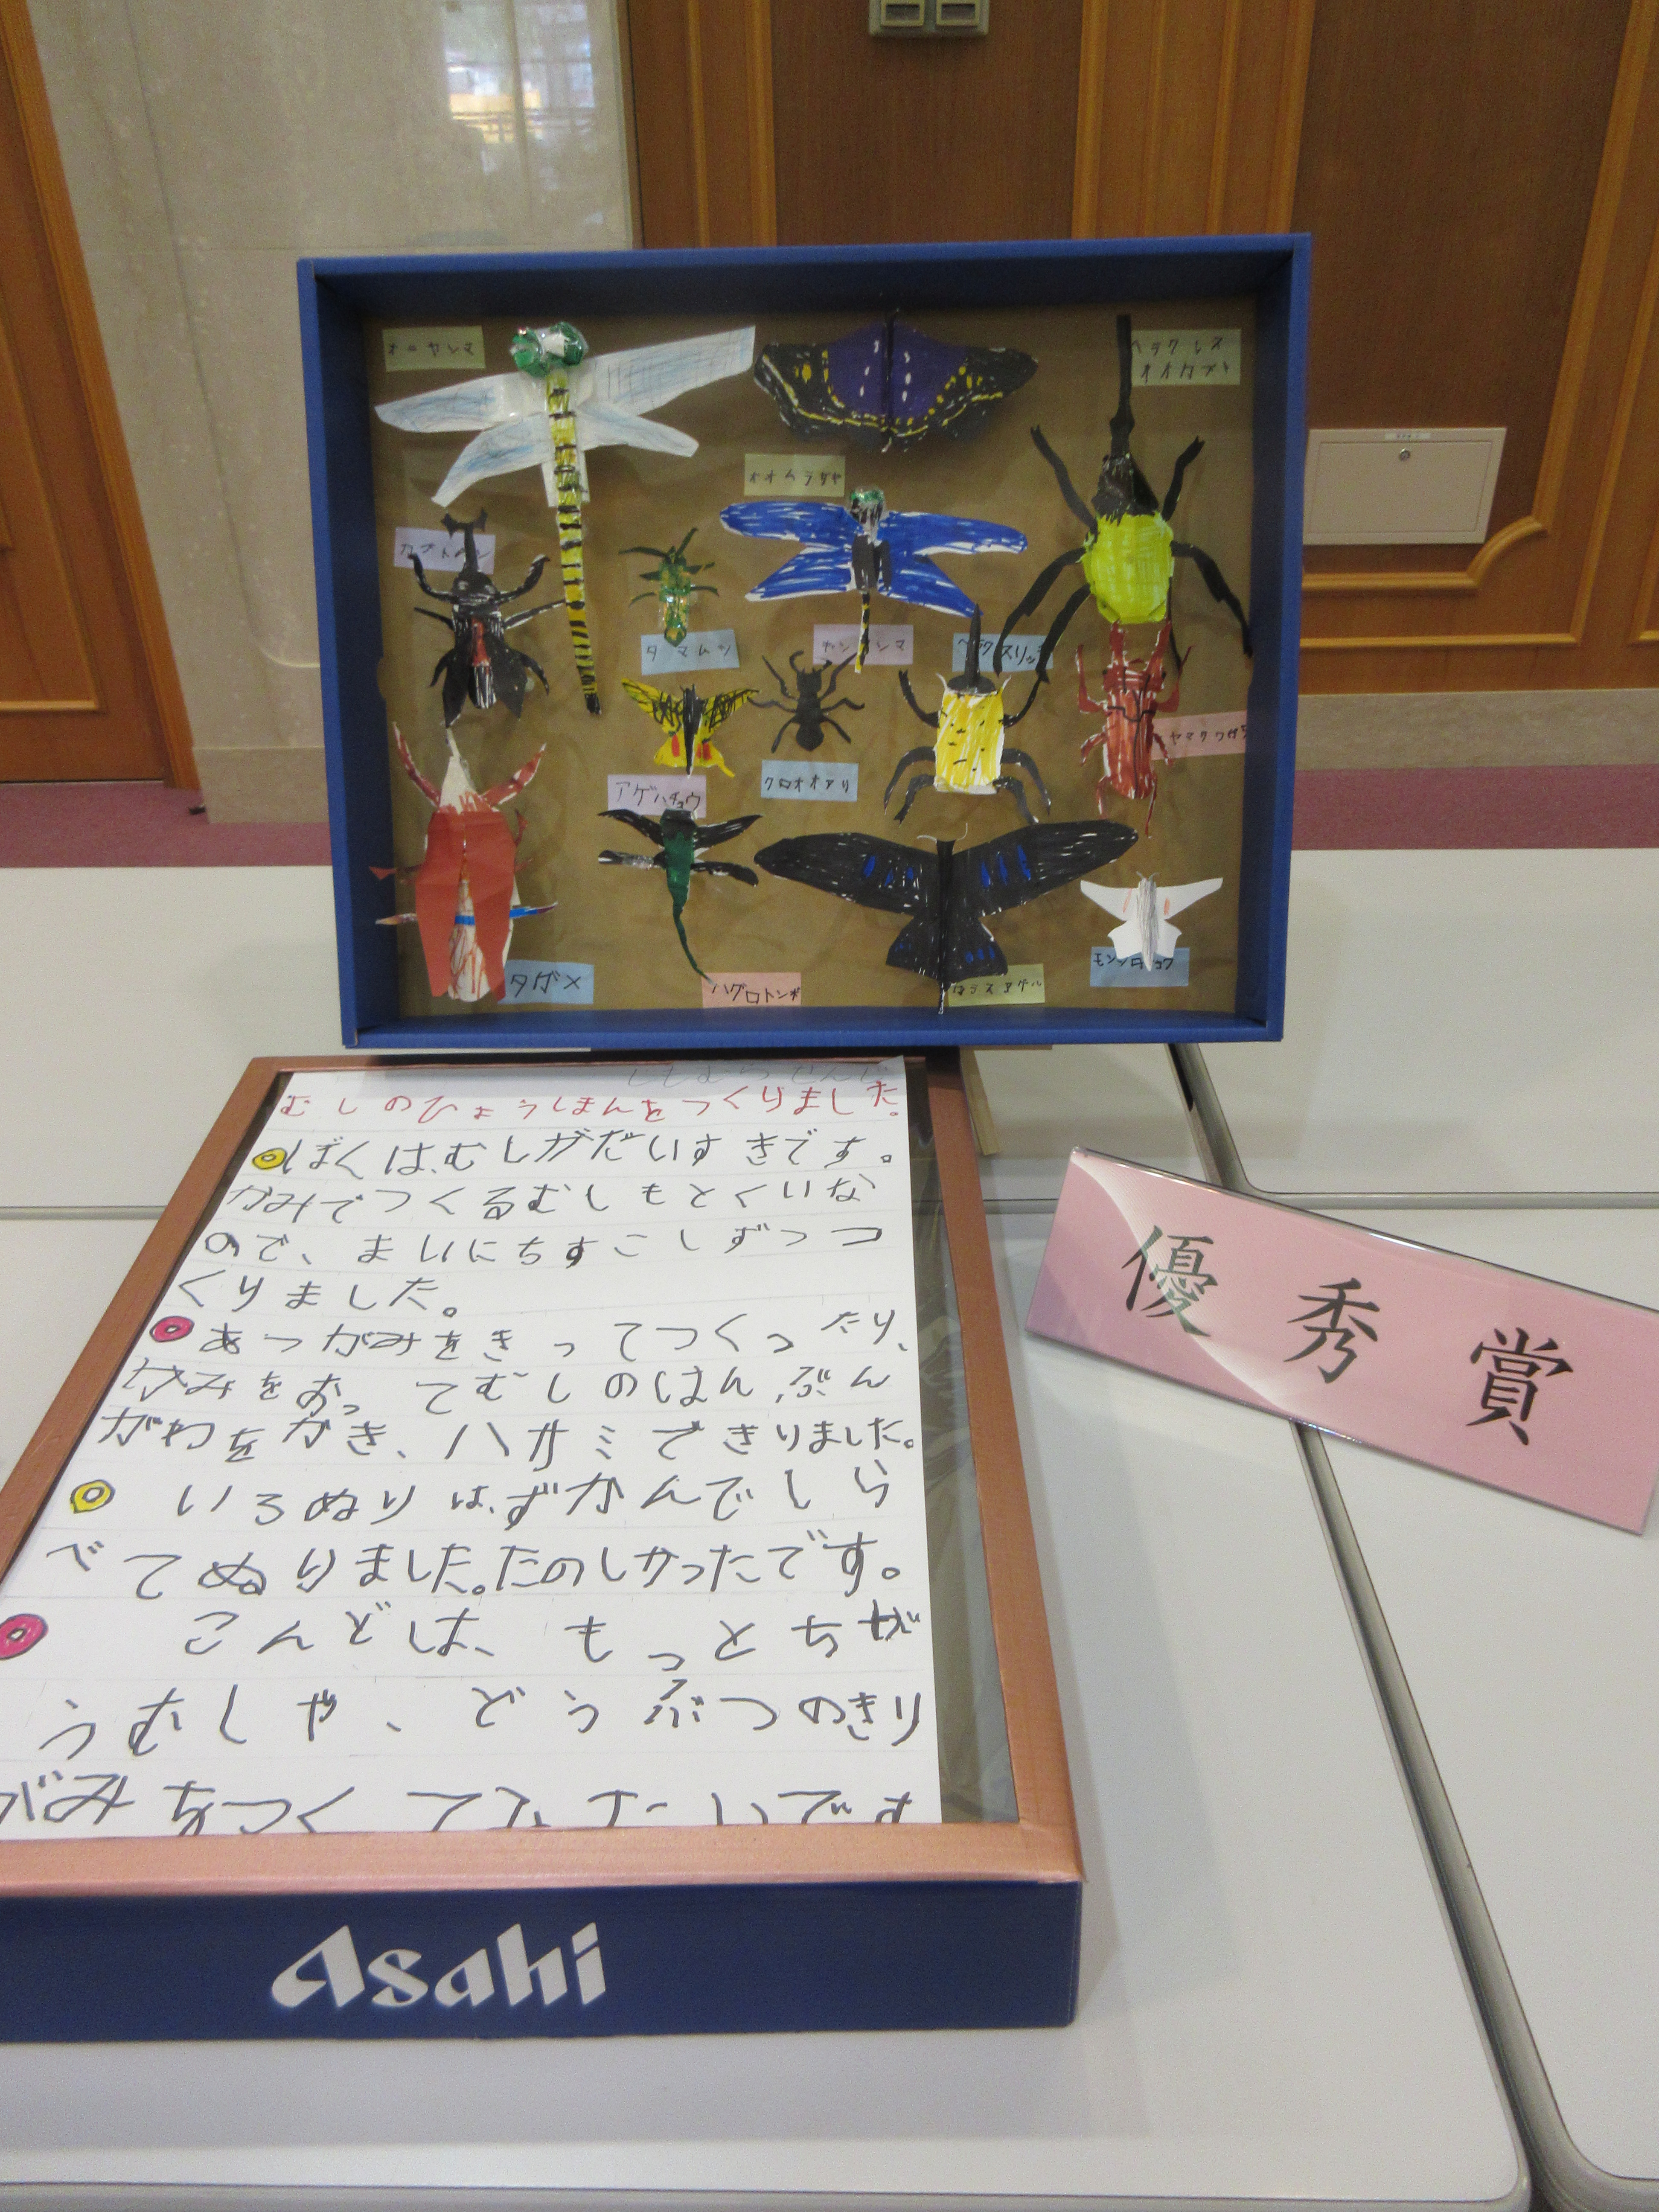 オニヤンマ
ヘラクレス
オオカブト
オオムラサキ
カブトムシ
タマムシ
ギンヤンマ
ヤマクワガタ
アゲハチョウ
クロオオアリ
タガメ
ハグロトンボ
カラスアゲハ
モンシロチョウ
むしのひょうほんをつくりました。
ぼくは、むしがだいすきです。
かみでつくるむしもとくいな
ので、まいにちすこしずつつ
くりました。
あつがみをきってつくったり、
かみをおってむしのはんぶん
がわをかき、ハサミできりました。
いろぬりは、ずかんでしら
べてぬりました。たのしかったです。
こんどは、もっとちが
うむしや、どうぶつのきり
がみをつくてみたいです
優秀賞
Asahi